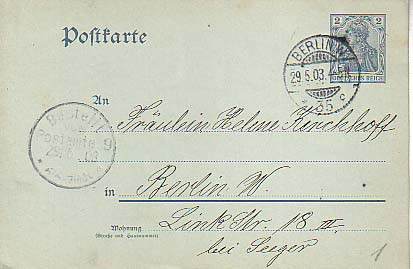 Postkarte
2 2
DEUTSCHES REICH
BERLIN W
29.5.03.
35 c
An
Fräulein Helene Kirchhoff
Bestellt
Postamte 9
29.5.03
in Berlin W.
Wohnung
(Straße und Hausnummer)
Link Str. 18 III.
bei Seeger
1